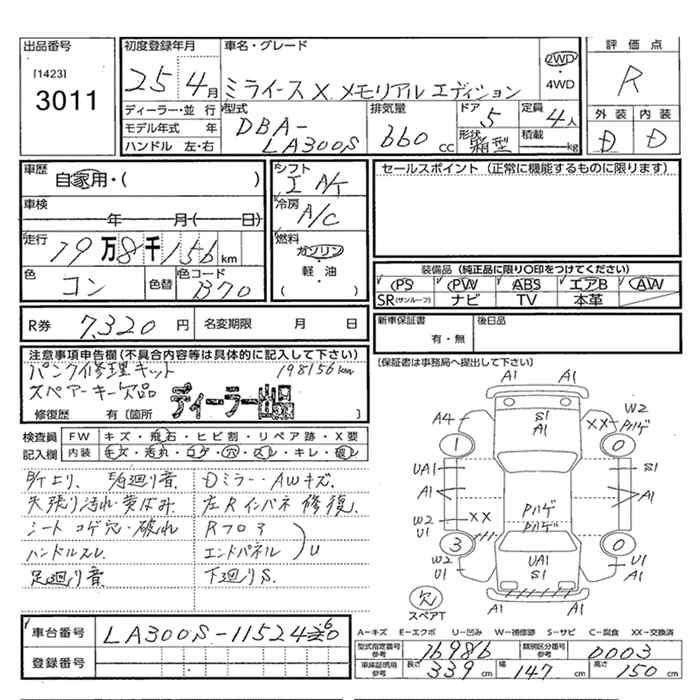 出品番号
[1423]
3011
初度登録年月
25年 4月
車名・グレード
ミライース X メモリアル エディション
2WD
・
4WD
評価点
R
ディーラー・並 行
モデル年式 年
ハンドル 左・右
型式
DBA-
LA300S
排気量
660 cc
ドア
5
形状
箱型
定員
4人
積載
kg
外装 内装
D D
車歴
自家用・( )
車検
年 月( 日)
走行
19万8千156km
色
コン
色替
色コード
B70
シフト
I A/T
冷房
A/C
燃料
ガソリン
・
軽・油
( )
セールスポイント (正常に機能するものに限ります)
装備品 (純正品に限り○印をつけてください)
PS PW ABS エアB AW
SR(サンルーフ) ナビ TV 本革
R券 7,320円 名変期限 月 日
新車保証書
有・無
後日品
(保証書は事務局へ提出して下さい)
注意事項申告欄(不具合内容等は具体的に記入して下さい)
パンク修理キット 198156km
スペアーキー欠品
ディーラー出品
修復歴 有(箇所 )
検査員
記入欄
FW キズ・飛石・ヒビ割・リペア跡・X要
内装 キズ・汚れ・コゲ・穴・スレ・キレ・破レ
天張り汚れ・黄ばみ
シート コゲ穴・破れ
ハンドルスレ
足廻り音
Dミラー・AWキズ
左Rインパネ 修復
Rフロア
エンドパネル
U
下廻りS
A1 A1
S1
A1
A4
XX
W2
Pハゲ
1 0
UA1 S1
A1 A1
W2
U1
XX
Pハゲ
Pハゲ
3 0
UA1
S1
U1
A1
W2
U1
A1
欠
スペアT
A1
車台番号 LA300S-1152460
登録番号
A-キズ E-エクボ U-凹み W-補修跡 S-サビ C-腐食 XX-交換済
型式指定番号
参考
16986
類別区分番号
参考
0003
車庫証明用
参考
長さ 339cm 幅 147cm 高さ 150cm